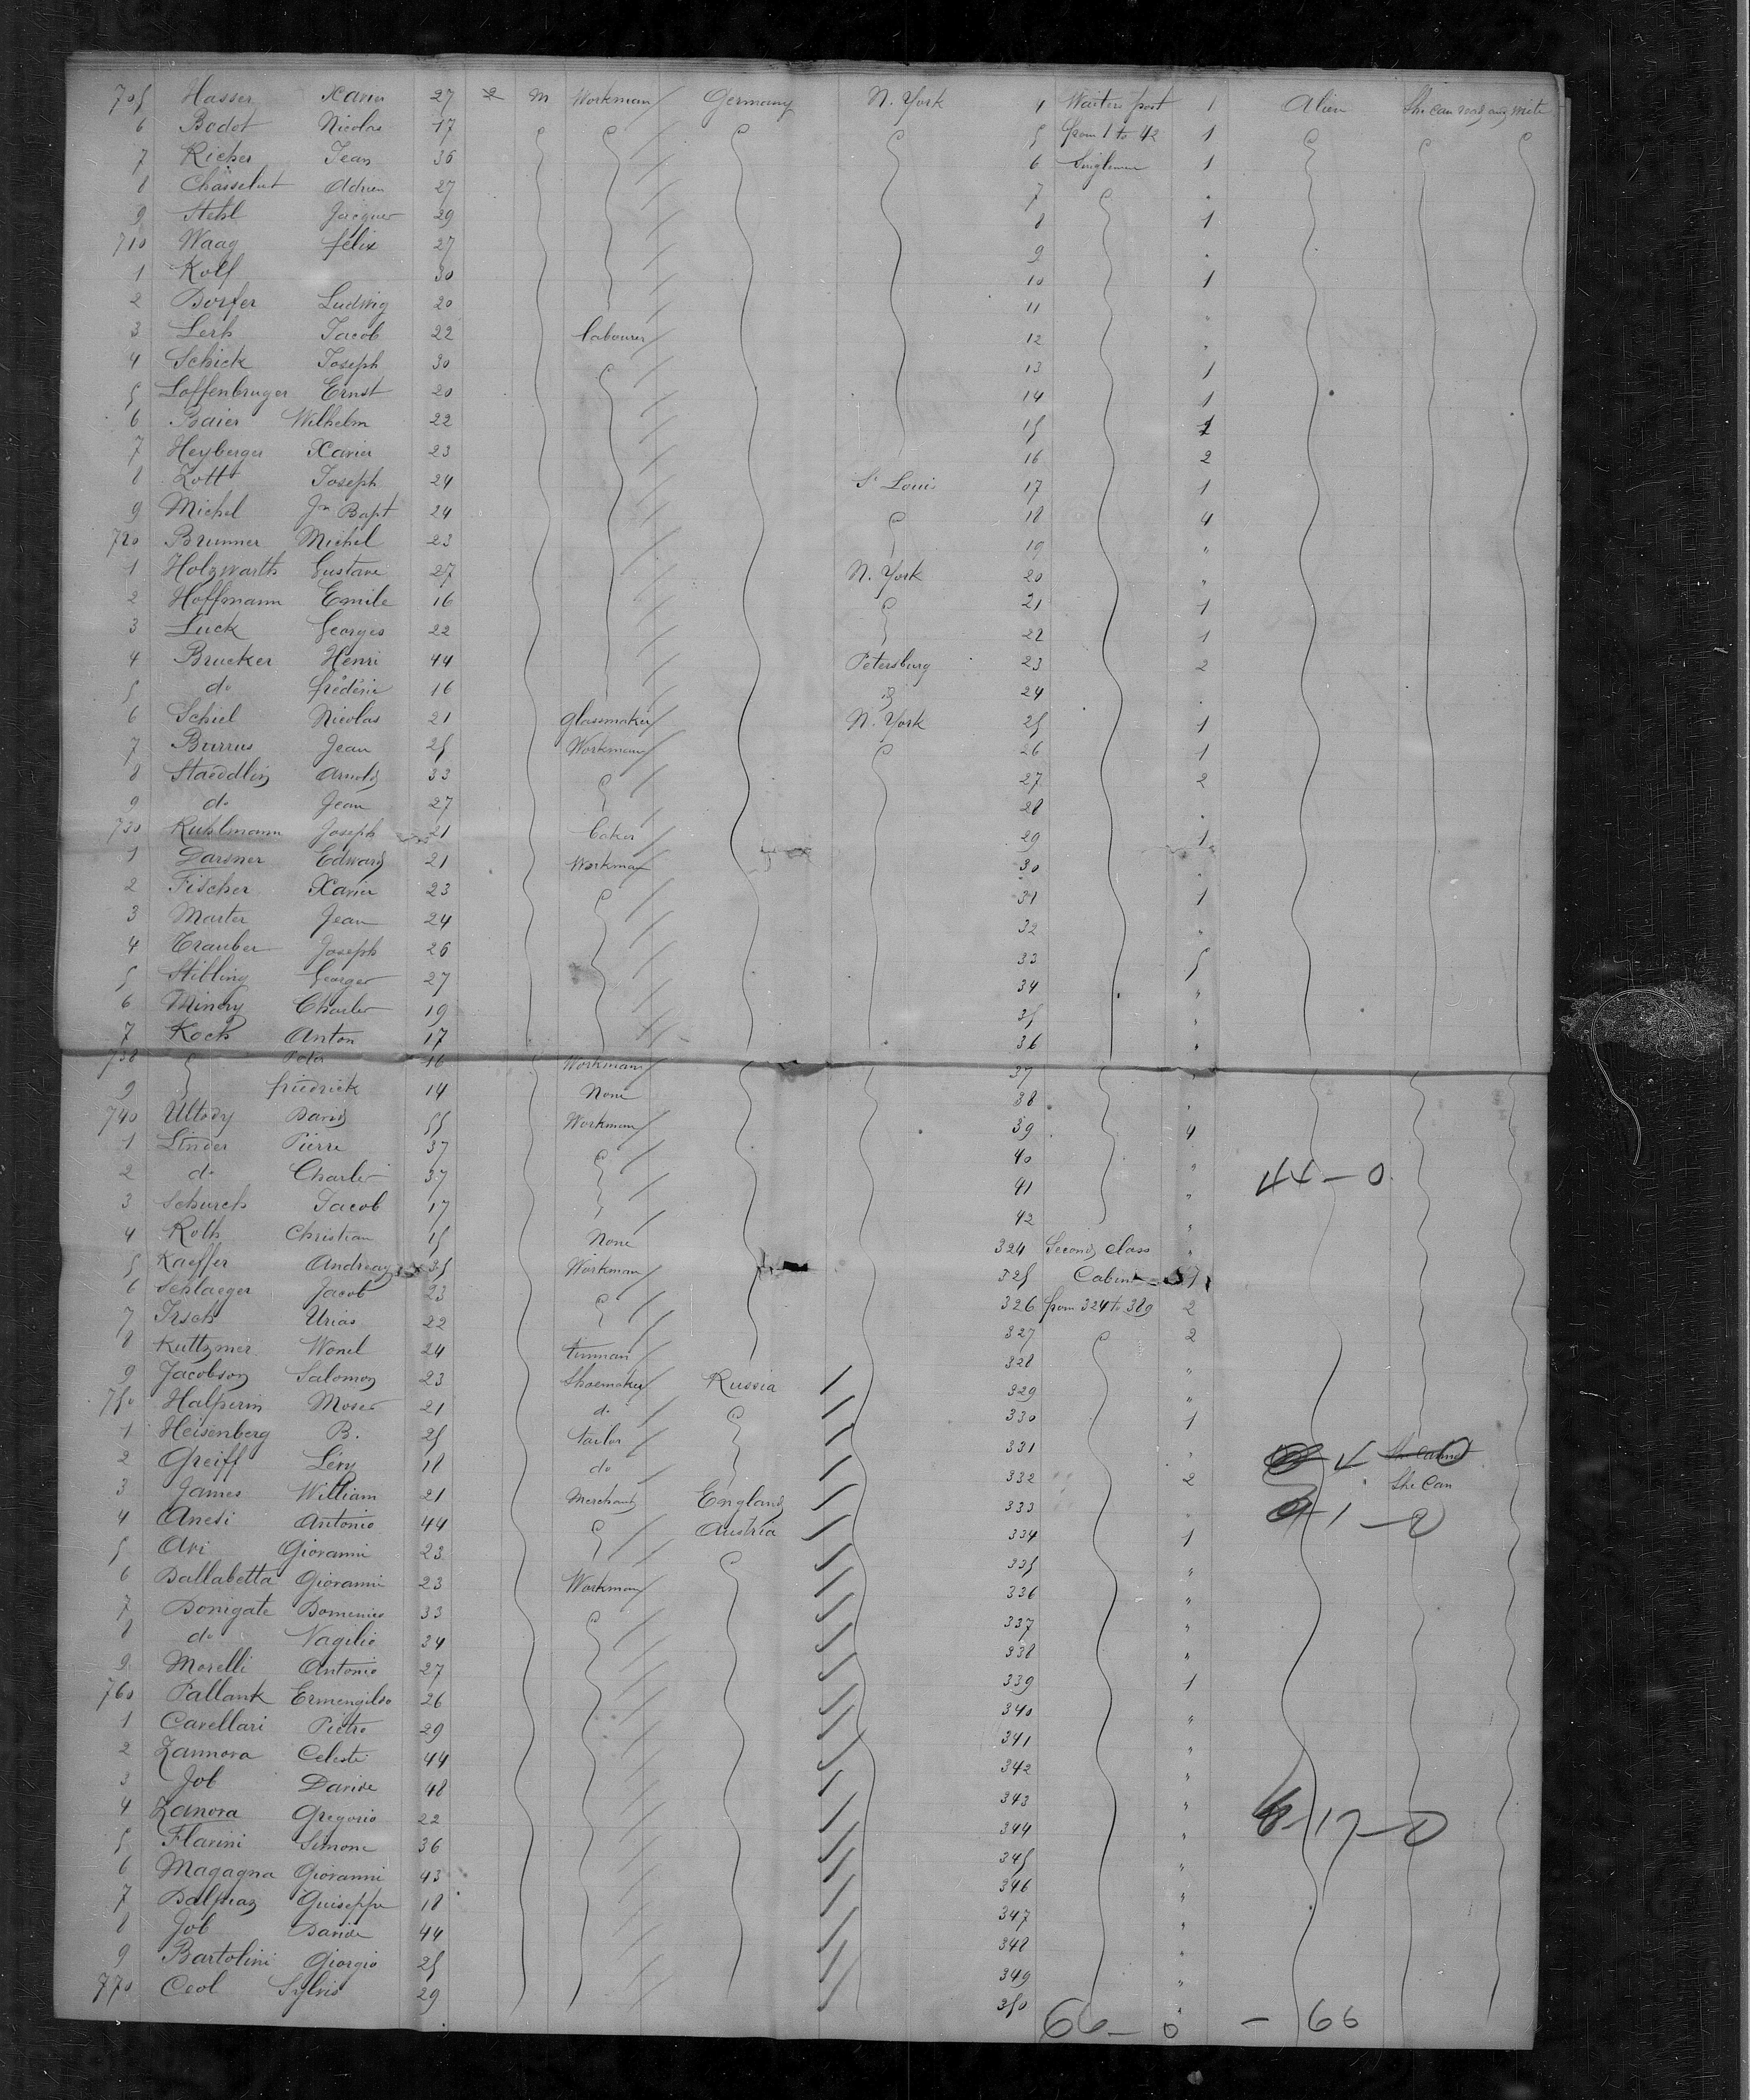 705 Hasser Xavier 27 m Workman Germany N. York 1 Waiters post 1 Alien She can read and write
6 Bodet Nicolas 17 5 from 1 to 42 1
7 Richer Jean 36 6 Singlemen 1
8 Chasselut Adrien 27 7
9 Stehl Jacques 29 8 1
710 Waag félix 27 9
1 Kolf 30 10 1
2 Dorfer Ludwig 20 11 "
3 Lerh Jacob 22 labourer 12
4 Schick Joseph 30 13 1
5 Loffenbruger Ernst 20 14 1
6 Baier Wilhelm 22 15 1
7 Heyberger Xavier 23 16 2
8 Lott Joseph 24 St Louis 17 1
9 Michel Jn Bapt 24 18 4
720 Brunner Michel 23 19 "
1 Holzwarth Gustave 27 N. York 20 "
2 Hoffmann Emile 16 21 1
3 Luck Georges 22 22 1
4 Brucker Henri 44 Petersburg 23 2
5 do frédéric 16 24
6 Schiel Nicolas 21 glassmaker N. York 25 1
7 Burrus Jean 25 Workman 26 1
8 Staeddlin Arnold 33 27 2
9 do Jean 27 28
730 Kuhlmann Joseph 21 baker 29 1
1 Darsner Edward 21 Workman 30
2 Fischer Xavier 23 31 1
3 Marter Jean 24 32 "
4 Trauber Joseph 26 33 5
5 Stibling George 27 34 "
6 Minery Charles 19 35 "
7 Koch Anton 17 36 "
738 Peter 16 Workman 37
9 friedrick 14 None 38 "
740 Ultsdy David 55 Workman 39 4
1 Linder Pierre 37 40 "
2 do Charles 37 41 " 44 – 0
3 Schurch Jacob 17 42 "
4 Roth Christian 15 None 324 Second class "
5 Kaeffer Andreas 35 Workman 325 Cabin
6 Schlaeger Jacob 23 326 from 324 to 389 2
7 Irsch Urias 22 327 2
8 Kuttzmer Wonel 24 tinman 328 "
9 Jacobson Salomon 23 Shoemaker Russia 329 "
750 Halperin Moses 21 do 330 1
1 Heisenberg B. 25 tailor 331 " 4
2 Greiff Lévy 18 do 332 2 She Can
3 James William 21 Merchant England 333 1 – 0
4 Anesi Antonio 44 Austria 334 1
5 Avi Giovanni 23 335 "
6 Dallabetta Giovanni 23 Workman 336 "
7 Donigate Domenico 33 337 "
8 do Vagilio 34 338 "
9 Morelli Antonio 27 339 1
760 Pallank Ermengildo 26 340 "
1 Cavellari Pietro 29 341 "
2 Zannora Celeste 44 342 "
3 Job Davide 48 343 "
4 Zanora Gregorio 22 344 " 17 – 0
5 Flarini Simone 36 345 "
6 Magagna Giovanni 43 346 "
7 Dalpiaz Guiseppe 18 347 "
8 Job Davide 44 348 "
9 Bartolini Giorgio 25 349 "
770 Ceol Sylvio 29 350 "
66 – 0 – 66